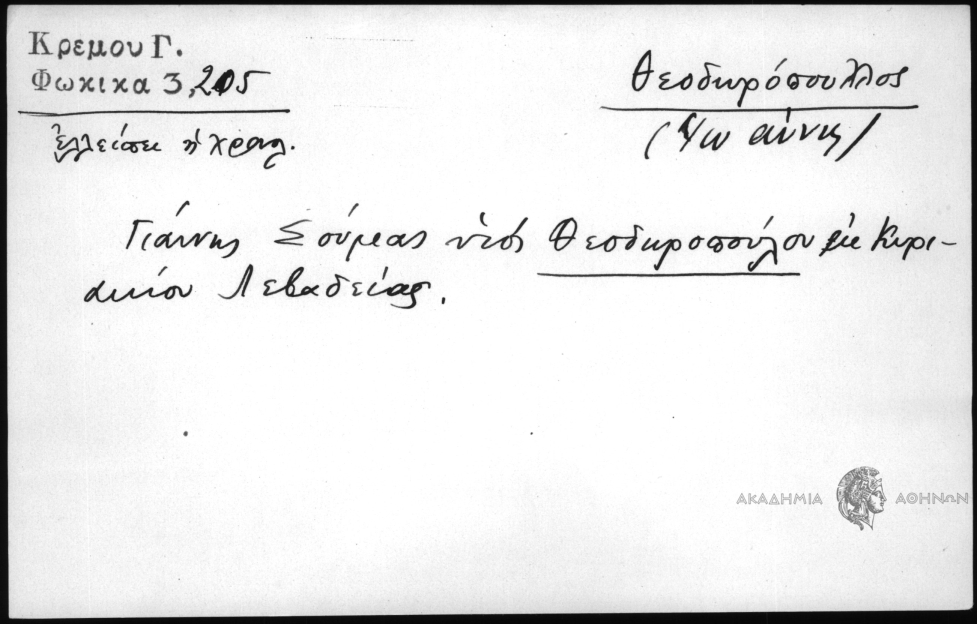 Κρεμου Γ.
Φωκικα 3, 205
ἐλλείπει ἡ χρονολ.
Θεοδωρόπουλλος
(Ἰωάννης)
Γιάννης Σούρλας υἱός Θεοδωροπούλου ἐκ Κυρι-
ακίου Λεβαδείας.
ΑΚΑΔΗΜΙΑ ΑΘΗΝΩΝ